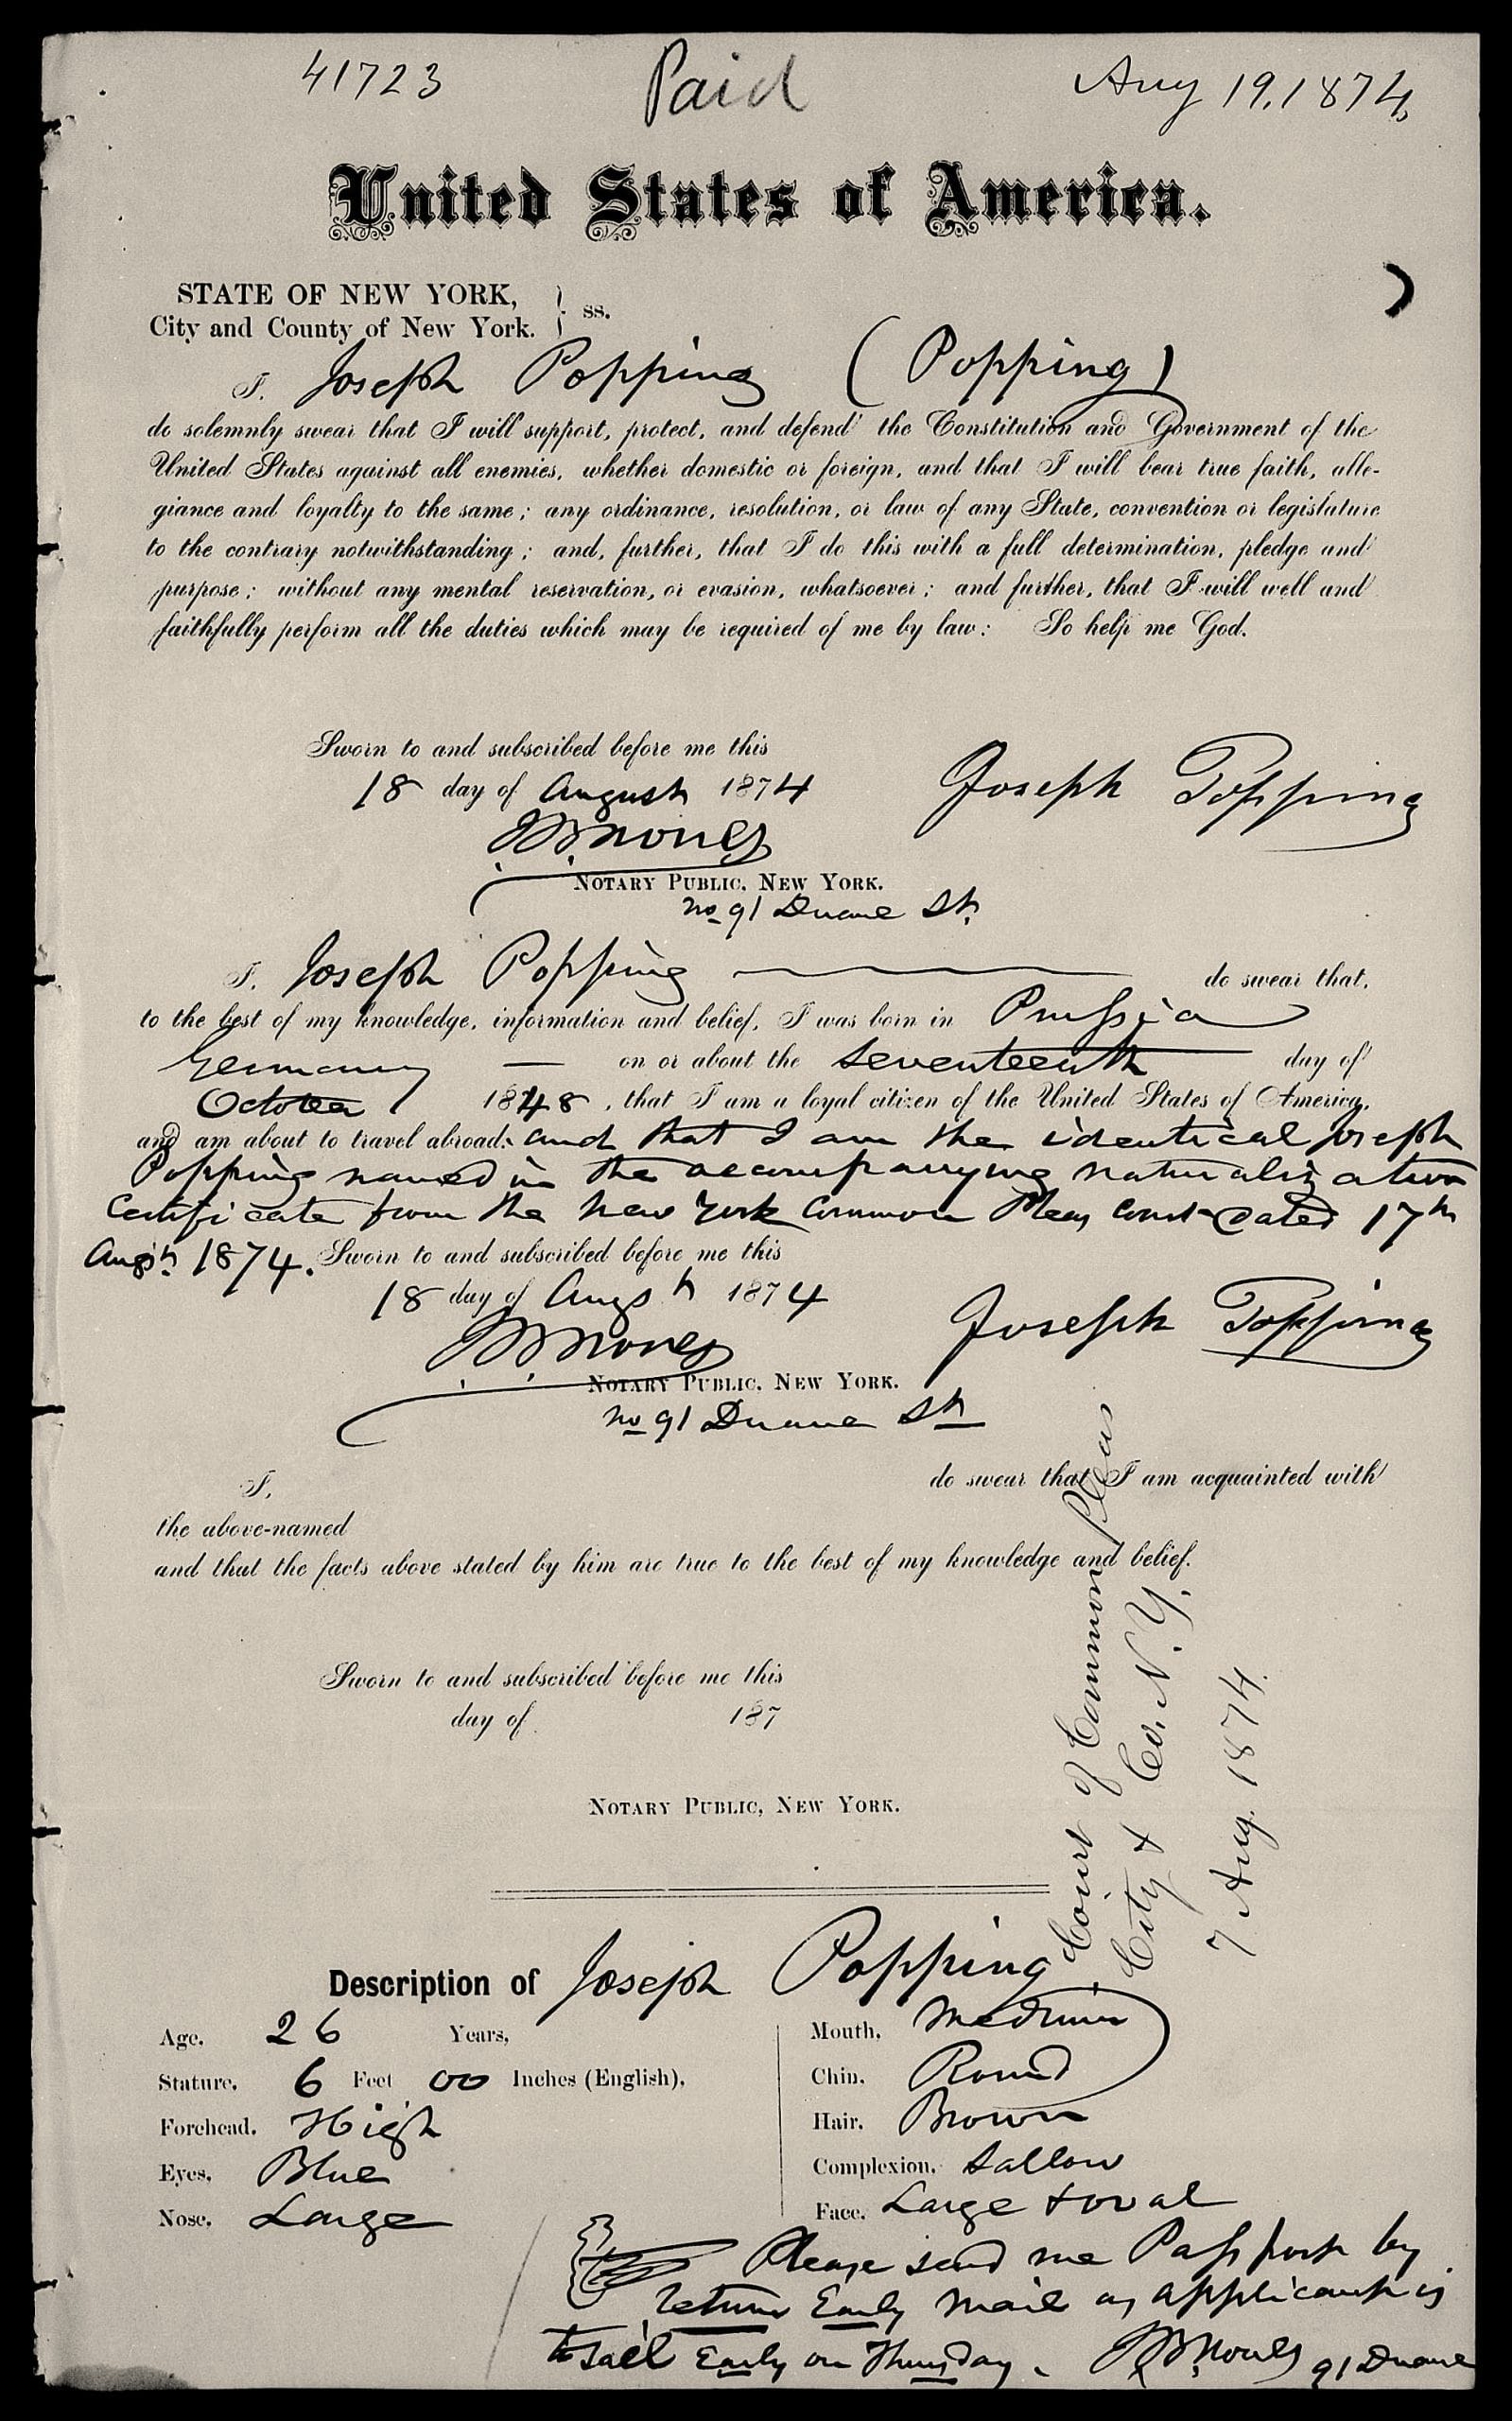 41723 Paid Aug 19, 1874
United States of America.
STATE OF NEW YORK,
City and County of New York. } ss.
I, Joseph Popping (Popping)
do solemnly swear that I will support, protect, and defend the Constitution and Government of the
United States against all enemies, whether domestic or foreign, and that I will bear true faith, alle-
giance and loyalty to the same; any ordinance, resolution, or law of any State, convention or legislature
to the contrary notwithstanding; and, further, that I do this with a full determination, pledge and
purpose; without any mental reservation, or evasion, whatsoever; and further, that I will well and
faithfully perform all the duties which may be required of me by law: So help me God.
Sworn to and subscribed before me this
18 day of August 1874 Joseph Popping
JB Nones
NOTARY PUBLIC, NEW YORK.
No 91 Duane St.
I, Joseph Popping do swear that,
to the best of my knowledge, information and belief, I was born in Prussia
Germany — on or about the Seventeenth day of
October 1848, that I am a loyal citizen of the United States of America,
and am about to travel abroad; and that I am the identical Joseph
Popping named in the accompanying naturalization
Certificate from the New York Common Pleas Court dated 17th
Augst 1874. Sworn to and subscribed before me this
18 day of Augst 1874 Joseph Popping
JB Nones
NOTARY PUBLIC, NEW YORK.
No 91 Duane St
I, do swear that I am acquainted with
the above-named
and that the facts above stated by him are true to the best of my knowledge and belief.
Sworn to and subscribed before me this
day of 187
NOTARY PUBLIC, NEW YORK.
Court of Common Pleas
City & Co. N.Y.
7 Aug. 1874.
Description of Joseph Popping
Age, 26 Years, Mouth, Medium
Stature, 6 Feet 00 Inches (English), Chin, Round
Forehead, High Hair, Brown
Eyes, Blue Complexion, Sallow
Nose, Large Face, Large & oval
Please send me Passport by
return Early mail as applicant is
to sail Early on Thursday. JB Nones 91 Duane